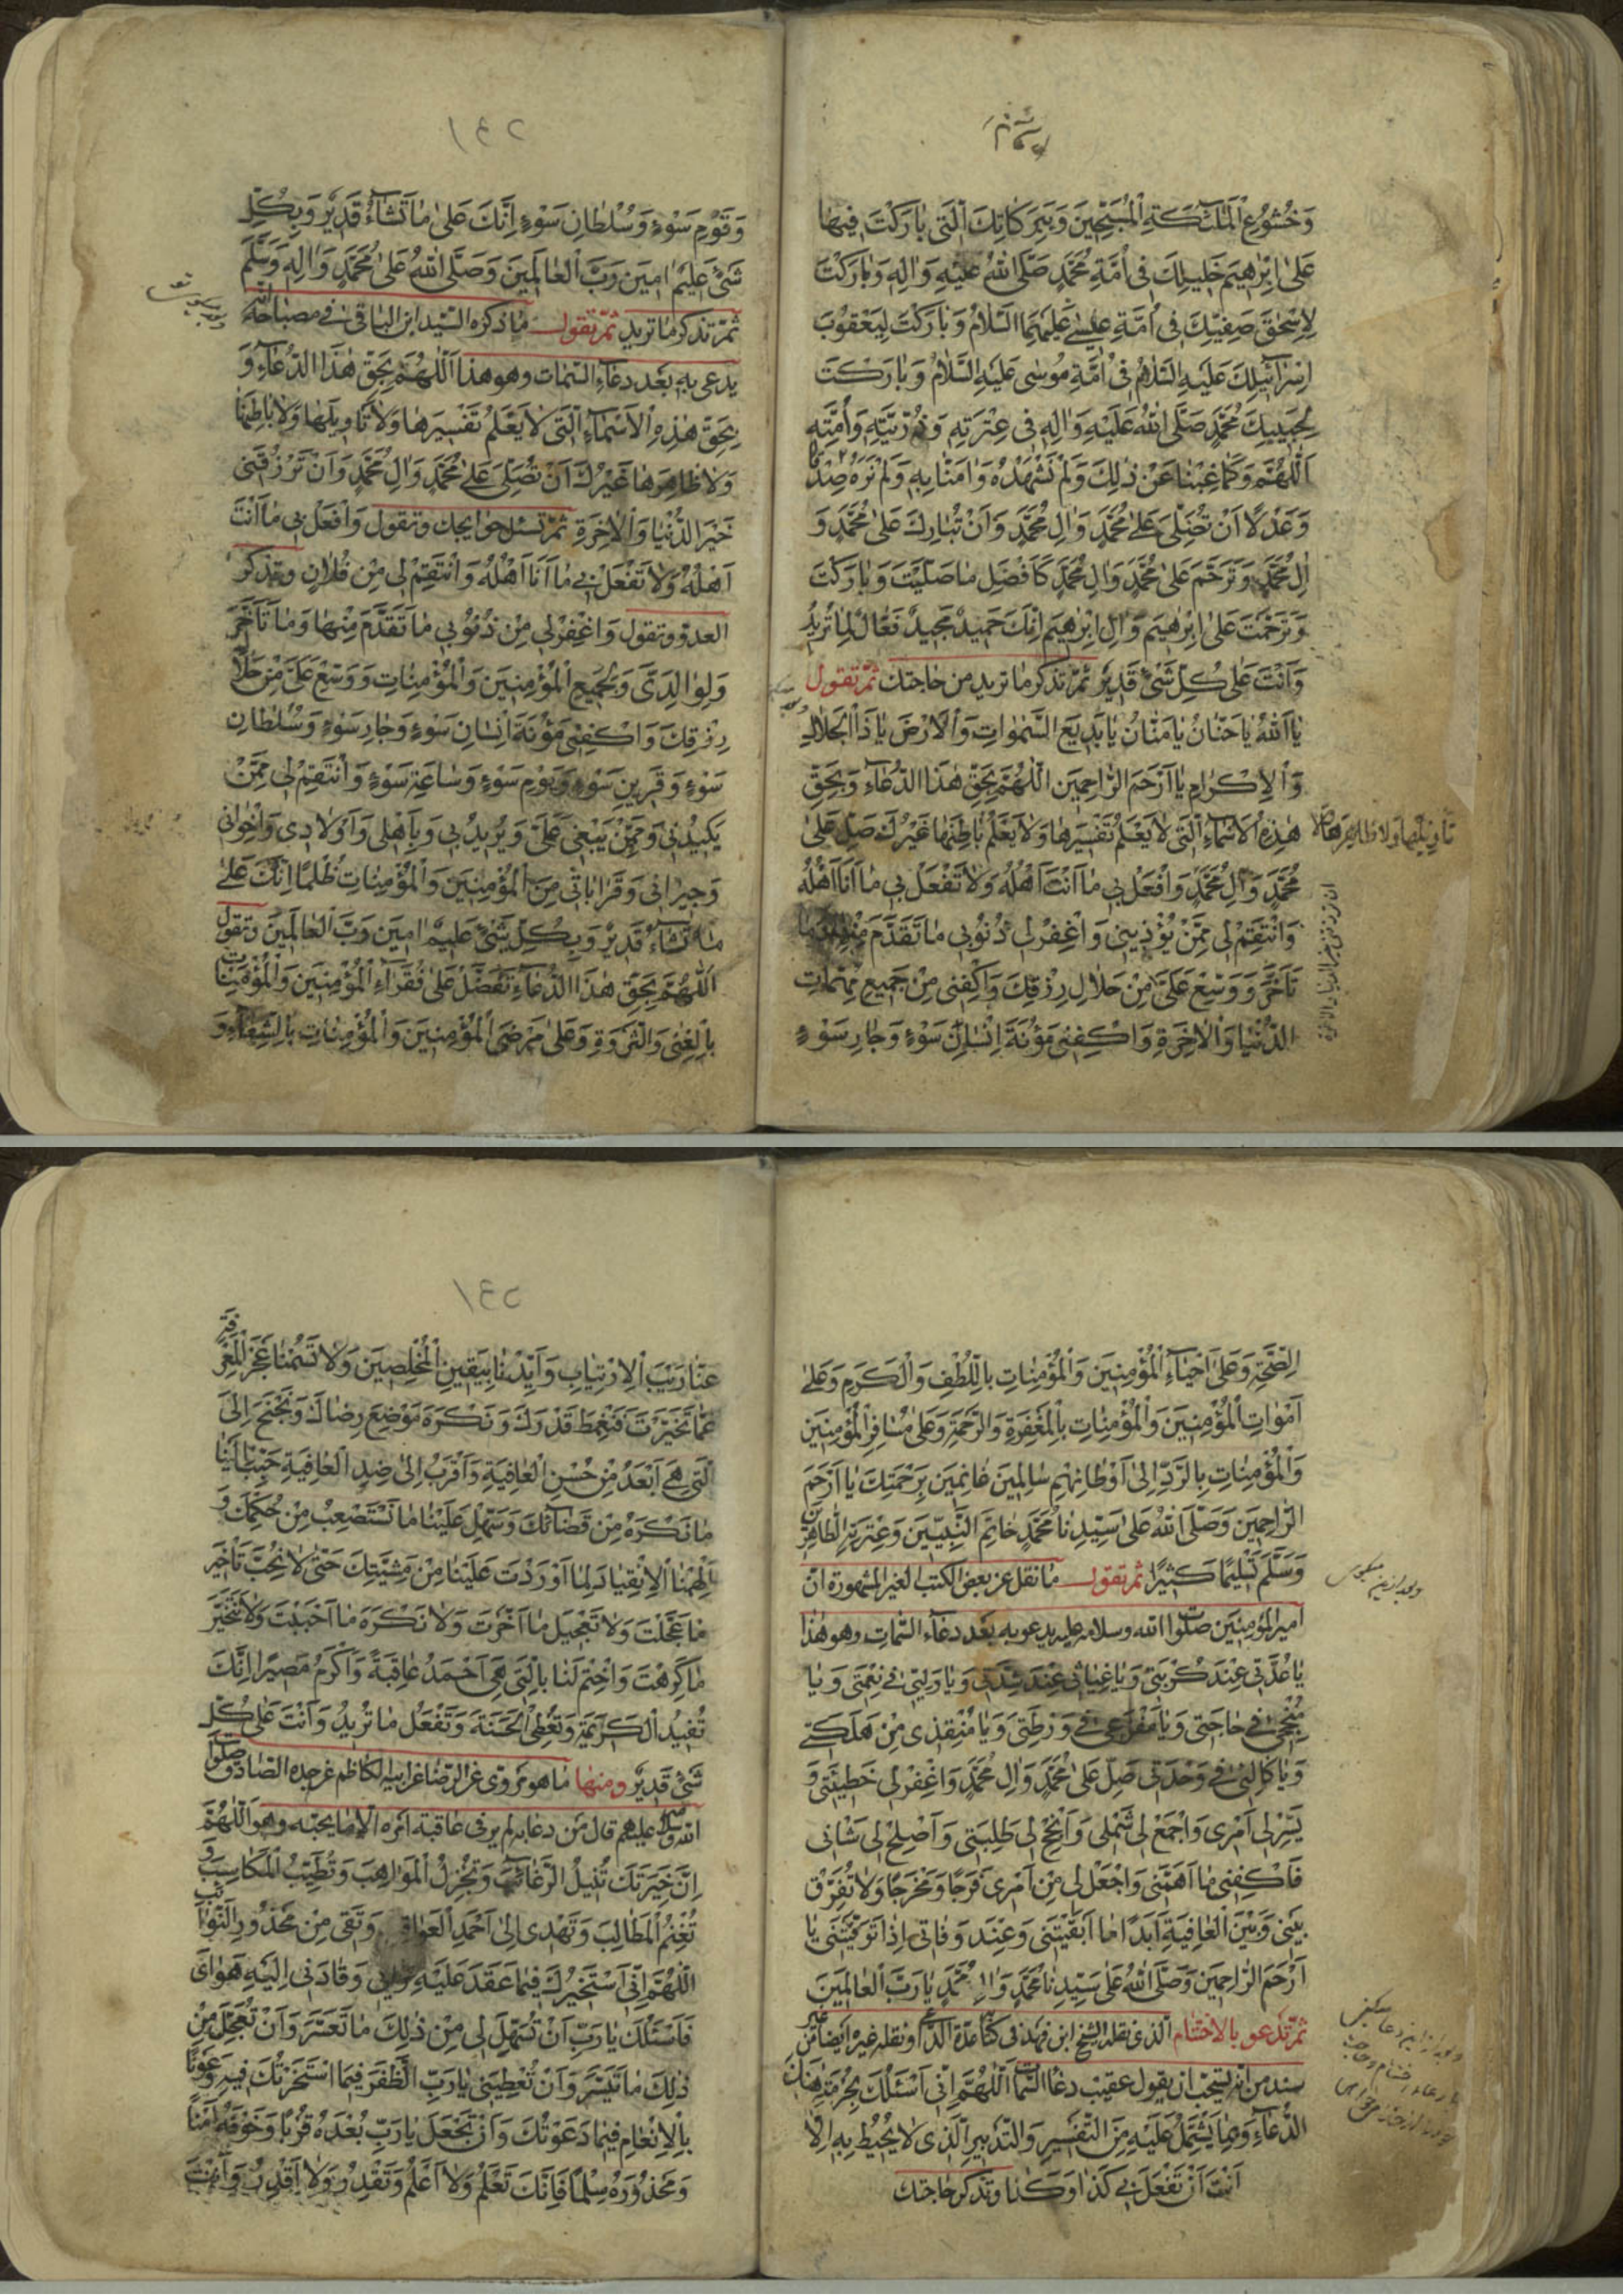 وَخُشُوعِ الْمَلٰٓئِكَةِ الْمُسَبِّحِينَ وَبِبَرَكَاتِكَ الَّتِي بٰارَكْتَ فِيهٰا
عَلىٰ اِبْرٰاهِيمَ خَلِيلِكَ فِي اُمَّةِ مُحَمَّدٍ صَلَّى اللهُ عَلَيْهِ وَاٰلِهِ وَبٰارَكْتَ
لِاِسْحٰقَ صَفِيِّكَ فِي اُمَّةِ عِيسٰى عَلَيْهِمَا السَّلٰامُ وَبٰارَكْتَ لِيَعْقُوبَ
اِسْرٰآئِيلِكَ عَلَيْهِ السَّلٰامُ فِي اُمَّةِ مُوسٰى عَلَيْهِ السَّلٰامُ وَبٰارَكْتَ
لِحَبِيبِكَ مُحَمَّدٍ صَلَّى اللهُ عَلَيْهِ وَاٰلِهِ فِي عِتْرَتِهِ وَذُرِّيَّتِهِ وَاُمَّتِهِ
اَللّٰهُمَّ وَكَمٰا غِبْنٰا عَنْ ذٰلِكَ وَلَمْ نَشْهَدْهُ وَاٰمَنّٰا بِهِ وَلَمْ نَرَهُ صِدْقًا
وَعَدْلًا اَنْ تُصَلِّيَ عَلىٰ مُحَمَّدٍ وَاٰلِ مُحَمَّدٍ وَاَنْ تُبٰارِكَ عَلىٰ مُحَمَّدٍ وَ
اٰلِ مُحَمَّدٍ وَتَرَحَّمَ عَلىٰ مُحَمَّدٍ وَاٰلِ مُحَمَّدٍ كَاَفْضَلِ مٰا صَلَّيْتَ وَبٰارَكْتَ
وَتَرَحَّمْتَ عَلىٰ اِبْرٰهِيمَ وَاٰلِ اِبْرٰهِيمَ اِنَّكَ حَمِيدٌ مَجِيدٌ فَعّٰالٌ لِمٰا تُرِيدُ
وَاَنْتَ عَلىٰ كُلِّ شَيْءٍ قَدِيرٌ ثمّ تذكر ما تريد من حاجتك ثمّ تقول
يٰا اَللهُ يٰا حَنّٰانُ يٰا مَنّٰانُ يٰا بَدِيعَ السَّمٰوٰاتِ وَالْاَرْضِ يٰا ذَا الْجَلٰالِ
وَالْاِكْرٰامِ يٰا اَرْحَمَ الرّٰاحِمِينَ اَللّٰهُمَّ بِحَقِّ هٰذَا الدُّعٰآءِ وَبِحَقِّ
هٰذِهِ الْاَسْمٰآءِ الَّتِي لٰا يَعْلَمُ تَفْسِيرَهٰا وَلٰا يَعْلَمُ بٰاطِنَهٰا غَيْرُكَ صَلِّ عَلىٰ
تأويلها ولا ظاهرها
مُحَمَّدٍ وَاٰلِ مُحَمَّدٍ وَافْعَلْ بِي مٰا اَنْتَ اَهْلُهُ وَلٰا تَفْعَلْ بِي مٰا اَنَا اَهْلُهُ
وَانْتَقِمْ لِي مِمَّنْ يُؤْذِينِي وَاغْفِرْ لِي ذُنُوبِي مٰا تَقَدَّمَ مِنْهٰا وَمٰا
تَاَخَّرَ وَوَسِّعْ عَلَيَّ مِنْ حَلٰالِ رِزْقِكَ وَاكْفِنِي مِنْ جَمِيعِ مُهِمّٰاتِ
الدُّنْيٰا وَالْاٰخِرَةِ وَاكْفِنِي مَؤُنَةَ اِنْسٰانِ سَوْءٍ وَجٰارِ سَوْءٍ
١٤٢
وَقَوْمِ سَوْءٍ وَسُلْطٰانِ سَوْءٍ اِنَّكَ عَلىٰ مٰا تَشٰآءُ قَدِيرٌ وَبِكُلِّ
شَيْءٍ عَلِيمٌ اٰمِينَ رَبَّ الْعٰالَمِينَ وَصَلَّى اللهُ عَلىٰ مُحَمَّدٍ وَاٰلِهِ وَسَلَّمَ
ثمّ تذكر ما تريد ثمّ تقول ما ذكره السيّد ابن الباقي في مصباحه انّه
يدعى به بعد دعآء السّمات وهو هذا اَللّٰهُمَّ بِحَقِّ هٰذَا الدُّعٰآءِ وَ
بِحَقِّ هٰذِهِ الْاَسْمٰآءِ الَّتِي لٰا يَعْلَمُ تَفْسِيرَهٰا وَلٰا تَاْوِيلَهٰا وَلٰا بٰاطِنَهٰا
وَلٰا ظٰاهِرَهٰا غَيْرُكَ اَنْ تُصَلِّيَ عَلىٰ مُحَمَّدٍ وَاٰلِ مُحَمَّدٍ وَاَنْ تَرْزُقَنِي
خَيْرَ الدُّنْيٰا وَالْاٰخِرَةِ ثمّ تسئل حوايجك وتقول وَافْعَلْ بِي مٰا اَنْتَ
اَهْلُهُ وَلٰا تَفْعَلْ بِي مٰا اَنَا اَهْلُهُ وَانْتَقِمْ لِي مِنْ فُلٰانٍ وتذكر
العدوّ وتقول وَاغْفِرْ لِي مِنْ ذُنُوبِي مٰا تَقَدَّمَ مِنْهٰا وَمٰا تَاَخَّرَ
وَلِوٰالِدَيَّ وَلِجَمِيعِ الْمُؤْمِنِينَ وَالْمُؤْمِنٰاتِ وَوَسِّعْ عَلَيَّ مِنْ حَلٰالِ
رِزْقِكَ وَاكْفِنِي مَؤُنَةَ اِنْسٰانِ سَوْءٍ وَجٰارِ سَوْءٍ وَسُلْطٰانِ
سَوْءٍ وَقَرِينِ سَوْءٍ وَيَوْمِ سَوْءٍ وَسٰاعَةِ سَوْءٍ وَانْتَقِمْ لِي مِمَّنْ
يَكِيدُنِي وَمِمَّنْ يَبْغِي عَلَيَّ وَيُرِيدُ بِي وَبِاَهْلِي وَاَوْلٰادِي وَاِخْوٰانِي
وَجِيرٰانِي وَقَرٰابٰاتِي مِنَ الْمُؤْمِنِينَ وَالْمُؤْمِنٰاتِ ظُلْمًا اِنَّكَ عَلىٰ
مٰا تَشٰآءُ قَدِيرٌ وَبِكُلِّ شَيْءٍ عَلِيمٌ اٰمِينَ رَبَّ الْعٰالَمِينَ وتقول
اَللّٰهُمَّ بِحَقِّ هٰذَا الدُّعٰآءِ تَفَضَّلْ عَلىٰ فُقَرٰآءِ الْمُؤْمِنِينَ وَالْمُؤْمِنٰاتِ
بِالْغِنىٰ وَالثَّرْوَةِ وَعَلىٰ مَرْضَى الْمُؤْمِنِينَ وَالْمُؤْمِنٰاتِ بِالشِّفٰآءِ وَ
الصِّحَّةِ وَعَلىٰ اَحْيٰآءِ الْمُؤْمِنِينَ وَالْمُؤْمِنٰاتِ بِاللُّطْفِ وَالْكَرَمِ وَعَلىٰ
اَمْوٰاتِ الْمُؤْمِنِينَ وَالْمُؤْمِنٰاتِ بِالْمَغْفِرَةِ وَالرَّحْمَةِ وَعَلىٰ مُسٰافِرِ الْمُؤْمِنِينَ
وَالْمُؤْمِنٰاتِ بِالرَّدِّ اِلىٰ اَوْطٰانِهِمْ سٰالِمِينَ غٰانِمِينَ بِرَحْمَتِكَ يٰا اَرْحَمَ
الرّٰاحِمِينَ وَصَلَّى اللهُ عَلىٰ سَيِّدِنٰا مُحَمَّدٍ خٰاتَمِ النَّبِيِّينَ وَعِتْرَتِهِ الطّٰاهِرِينَ
وَسَلَّمَ تَسْلِيمًا كَثِيرًا ثمّ تقول ما نقل عن بعض الكتب الغير المشهورة انّ
امير المؤمنين صلوات الله وسلامه عليه يدعو به بعد دعآء السّمات وهو هذا
يٰا عُدَّتِي عِنْدَ كُرْبَتِي وَيٰا غِيٰاثِي عِنْدَ شِدَّتِي وَيٰا وَلِيِّي فِي نِعْمَتِي وَيٰا
مُنْجِحِي فِي حٰاجَتِي وَيٰا مَفْزَعِي فِي وَرْطَتِي وَيٰا مُنْقِذِي مِنْ هَلَكَتِي
وَيٰا كٰالِئِي فِي وَحْدَتِي صَلِّ عَلىٰ مُحَمَّدٍ وَاٰلِ مُحَمَّدٍ وَاغْفِرْ لِي خَطِيئَتِي وَ
يَسِّرْ لِي اَمْرِي وَاجْمَعْ لِي شَمْلِي وَاَنْجِحْ لِي طَلِبَتِي وَاَصْلِحْ لِي شَاْنِي
فَاكْفِنِي مٰا اَهَمَّنِي وَاجْعَلْ لِي مِنْ اَمْرِي فَرَجًا وَمَخْرَجًا وَلٰا تُفَرِّقْ
بَيْنِي وَبَيْنَ الْعٰافِيَةِ اَبَدًا مٰا اَبْقَيْتَنِي وَعِنْدَ وَفٰاتِي اِذٰا تَوَفَّيْتَنِي يٰا
اَرْحَمَ الرّٰاحِمِينَ وَصَلَّى اللهُ عَلىٰ سَيِّدِنٰا مُحَمَّدٍ وَاٰلِ مُحَمَّدٍ يٰا رَبَّ الْعٰالَمِينَ
ثمّ تدعو بالاختتام الّذي نقله الشّيخ ابن فهد في كتاب عدّة الدّاعي ونقله غيره ايضًا من غير
سند من انّه يستحبّ ان يقول عقيب دعآء السّمات اَللّٰهُمَّ اِنِّي اَسْئَلُكَ بِحُرْمَةِ هٰذَا
الدُّعٰآءِ وَبِمٰا يَشْتَمِلُ عَلَيْهِ مِنَ التَّفْسِيرِ وَالتَّدْبِيرِ الَّذِي لٰا يُحِيطُ بِهِ اِلّٰا
اَنْتَ اَنْ تَفْعَلَ بِي كَذٰا وَكَذٰا وتذكر حاجتك
عَنّٰا رَيْبَ الْاِرْتِيٰابِ وَاَيِّدْنٰا بِيَقِينِ الْمُخْلِصِينَ وَلٰا تَسُمْنٰا عَجْزَ الْمَعْرِفَةِ
عَمّٰا تَخَيَّرْتَ فَنَغْمِطَ قَدْرَكَ وَنَكْرَهَ مَوْضِعَ رِضٰاكَ وَنَجْنَحَ اِلَى
الَّتِي هِيَ اَبْعَدُ مِنْ حُسْنِ الْعٰاقِبَةِ وَاَقْرَبُ اِلىٰ ضِدِّ الْعٰافِيَةِ حَبِّبْ اِلَيْنٰا
مٰا نَكْرَهُ مِنْ قَضٰآئِكَ وَسَهِّلْ عَلَيْنٰا مٰا نَسْتَصْعِبُ مِنْ حُكْمِكَ وَ
اَلْهِمْنَا الْاِنْقِيٰادَ لِمٰا اَوْرَدْتَ عَلَيْنٰا مِنْ مَشِيَّتِكَ حَتّىٰ لٰا نُحِبَّ تَاْخِيرَ
مٰا عَجَّلْتَ وَلٰا تَعْجِيلَ مٰا اَخَّرْتَ وَلٰا نَكْرَهَ مٰا اَحْبَبْتَ وَلٰا نَتَخَيَّرَ
مٰا كَرِهْتَ وَاخْتِمْ لَنٰا بِالَّتِي هِيَ اَحْمَدُ عٰاقِبَةً وَاَكْرَمُ مَصِيرًا اِنَّكَ
تُفِيدُ الْكَرِيمَةَ وَتُعْطِي الْحَسَنَةَ وَتَفْعَلُ مٰا تُرِيدُ وَاَنْتَ عَلىٰ كُلِّ
شَيْءٍ قَدِيرٌ ومنها ما هو مروي عن الرّضا عن ابيه الكاظم عن جدّه الصّادق صلوات
الله عليهم قال من دعا به لم ير في عاقبة امره الّا ما يحبّه وهو اَللّٰهُمَّ
اِنَّ خِيَرَتَكَ تُنِيلُ الرَّغٰآئِبَ وَتُجْزِلُ الْمَوٰاهِبَ وَتُطَيِّبُ الْمَكٰاسِبَ وَ
تُغْنِمُ الْمَطٰالِبَ وَتَهْدِي اِلىٰ اَحْمَدِ الْعَوٰاقِبِ وَتَقِي مِنْ مَحْذُورِ النَّوٰائِبِ
اَللّٰهُمَّ اِنِّي اَسْتَخِيرُكَ فِيمٰا عَقَدَ عَلَيْهِ رَاْيِي وَقٰادَنِي اِلَيْهِ هَوٰايَ
فَاَسْئَلُكَ يٰا رَبِّ اَنْ تُسَهِّلَ لِي مِنْ ذٰلِكَ مٰا تَعَسَّرَ وَاَنْ تُعَجِّلَ مِنْ
ذٰلِكَ مٰا تَيَسَّرَ وَاَنْ تُعْطِيَنِي يٰا رَبِّ الظَّفَرَ فِيمَا اسْتَخَرْتُكَ فِيهِ وَعَوْنًا
بِالْاِنْعٰامِ فِيمٰا دَعَوْتُكَ وَاَنْ تَجْعَلَ يٰا رَبِّ بُعْدَهُ قُرْبًا وَخَوْفَهُ اَمْنًا
وَمَحْذُورَهُ سِلْمًا فَاِنَّكَ تَعْلَمُ وَلٰا اَعْلَمُ وَتَقْدِرُ وَلٰا اَقْدِرُ وَاَنْتَ